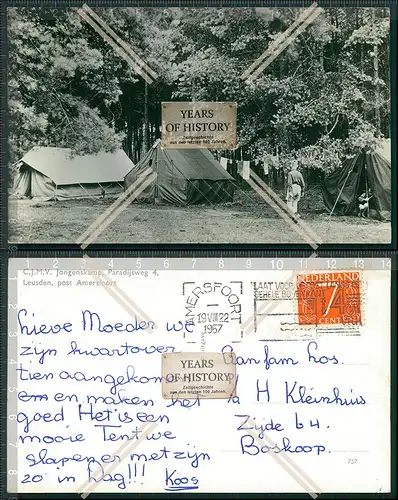 YEARS
OF HISTORY
Zeitgeschichte
aus den letzten 100 Jahren.
C.J.M.V. Jongenskamp, Paradijsweg 4,
Leusden, post Amersfoort
AMERSFOORT
19 VIII 22
1957
LAAT VOOR
GEHELE BOVEN
NEDERLAND
7
CENT
YEARS
OF HISTORY
Zeitgeschichte
aus den letzten 100 Jahren.
Lieve Moeder we
zijn kwartover
tien aangekomen
en maken het
goed Het is een
mooie Tent we
slapen er met zijn
20 in Dag!!! Koos
Aan fam Los.
p/a H Kleinhuis
Zijde 64.
Boskoop.
757